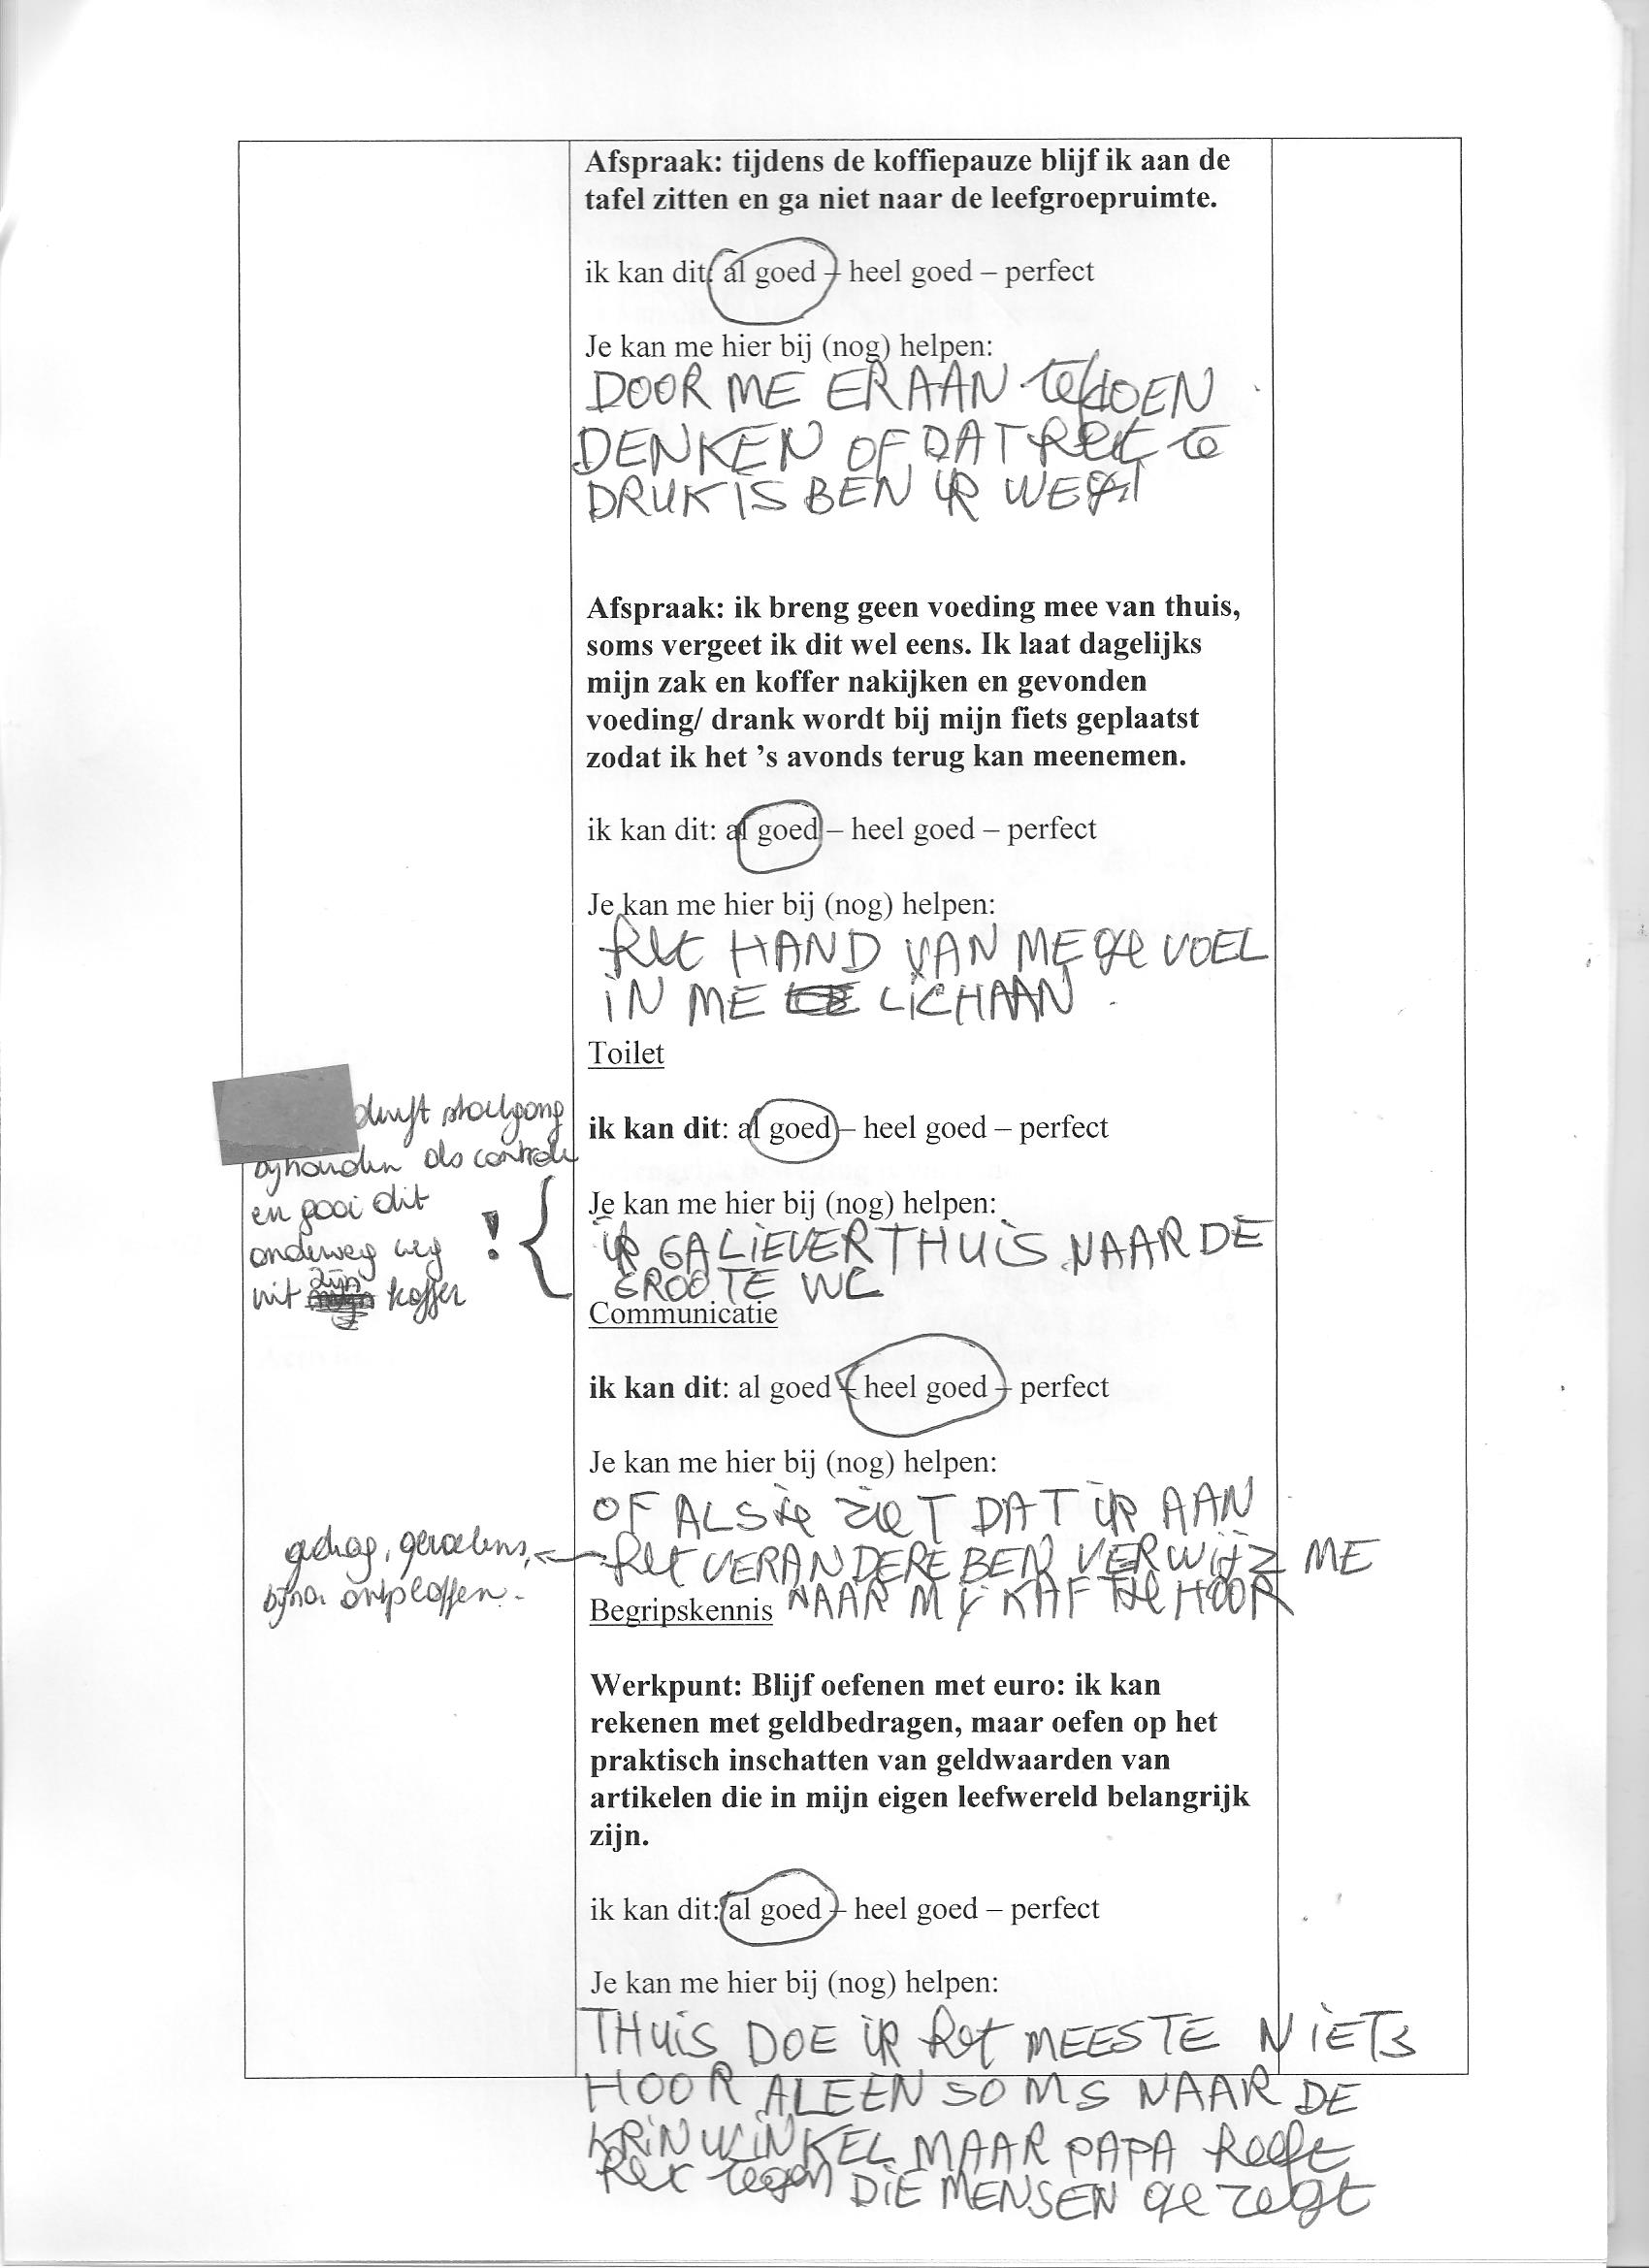 Afspraak: tijdens de koffiepauze blijf ik aan de
tafel zitten en ga niet naar de leefgroepruimte.
ik kan dit: al goed – heel goed – perfect
Je kan me hier bij (nog) helpen:
DOOR ME ERAAN te DOEN
DENKEN OF DAT het te
DRUK IS BEN IK WEG
Afspraak: ik breng geen voeding mee van thuis,
soms vergeet ik dit wel eens. Ik laat dagelijks
mijn zak en koffer nakijken en gevonden
voeding/ drank wordt bij mijn fiets geplaatst
zodat ik het ’s avonds terug kan meenemen.
ik kan dit: al goed – heel goed – perfect
Je kan me hier bij (nog) helpen:
het HAND VAN ME ge VOEL
IN ME LICHAAN
Toilet
ik kan dit: al goed – heel goed – perfect
durft stoelgang
bijhouden als controle
en gooi dit
onderweg weg
uit zijn koffer
!
Je kan me hier bij (nog) helpen:
ik GA LIEVER THUIS NAAR DE
GROOTE WC
Communicatie
ik kan dit: al goed – heel goed – perfect
Je kan me hier bij (nog) helpen:
OF ALS je ziet DAT ik AAN
het VERANDERE BEN VERWIJZ ME
NAAR MY KAFTJE HOOR
gedrag, gevoelens,
bijna ontploffen.
Begripskennis
Werkpunt: Blijf oefenen met euro: ik kan
rekenen met geldbedragen, maar oefen op het
praktisch inschatten van geldwaarden van
artikelen die in mijn eigen leefwereld belangrijk
zijn.
ik kan dit: al goed – heel goed – perfect
Je kan me hier bij (nog) helpen:
THUIS DOE ik het MEESTE NIETS
HOOR ALEEN SOMS NAAR DE
KRINWINKEL MAAR PAPA heeft
het tegen DIE MENSEN gezegt